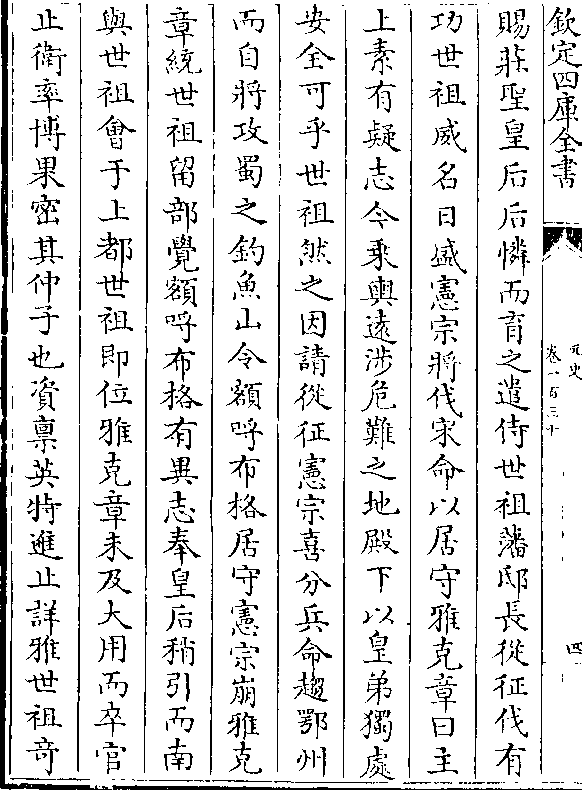 欽定四庫全書
元史
卷一百三十
四
賜莊聖皇后后憐而育之遣侍世祖藩邸長從征伐有
功世祖威名日盛憲宗將伐宋命以居守雅克章曰主
上素有疑志今乘輿遠涉危難之地殿下以皇弟獨處
安全可乎世祖然之因請從征憲宗喜分兵命趨鄂州
而自將攻蜀之釣魚山令額呼布格居守憲宗崩雅克
章統世祖留部覺額呼布格有異志奉皇后稍引而南
與世祖會于上都世祖即位雅克章未及大用而卒官
止衛率博果密其仲子也資禀英特進止詳雅世祖奇